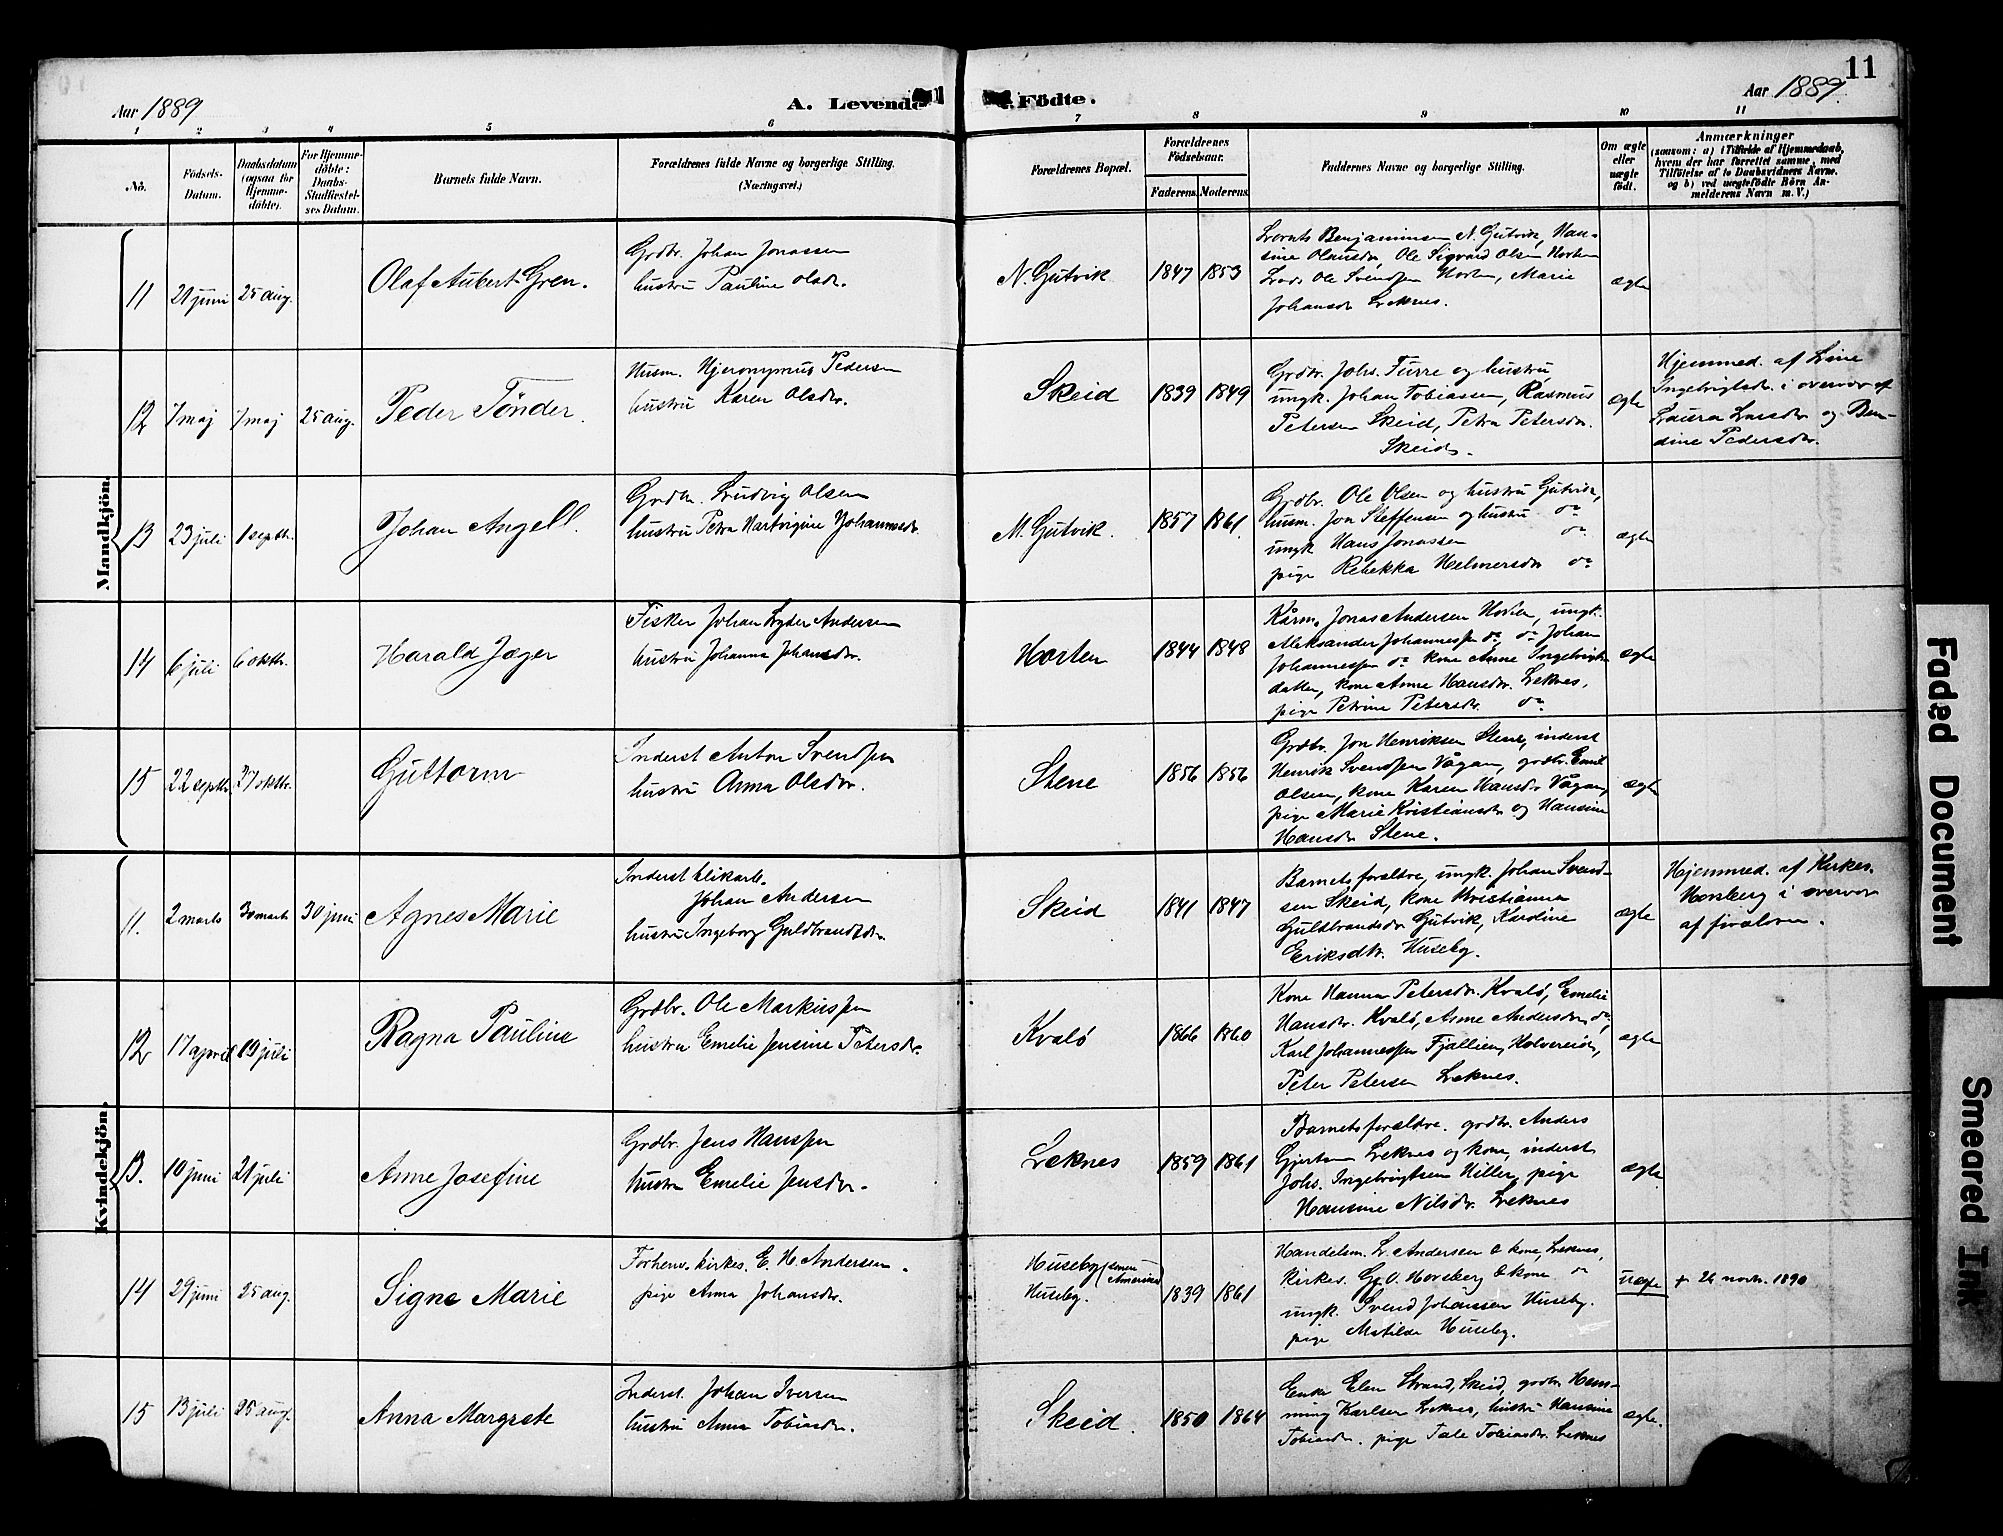 11
Aar 1889
A. Levende Födte.
Aar 1889.
1 2 3 4 5 6 7 8 9 10 11
No.
Födsels-
Datum.
Daabsdatum
(ogsaa for
Hjemme-
döbte).
For Hjemme-
döbte:
Daabs-
Stadfæstel-
ses Datum.
Barnets fulde Navn.
Forældrenes fulde Navne og borgerlige Stilling.
(Næringsvei.)
Forældrenes Bopæl.
Forældrenes
Födselsaar.
Faderens. Moderens.
Faddernes Navne og borgerlige Stilling.
Om ægte
eller
uægte
födt.
Anmærkninger
(saasom: a) i Tilfælde af Hjemmedaab,
hvem der har forrettet samme, med
Tilföielse af to Daabsvidners Navne.
og b) ved uægtefödte Börn An-
melderens Navn m. V.)
Mandkjön.
11
21 juni
25 aug.
Olaf Aubert Gren.
Grdbr. Johan Jonassen
hustru Pauline Olsdr.
N. Gutvik
1847
1853
Benjaminsen N. Gutvik, Han-
sine Olausdr, Ole Sigvard Olsen Horten
Ole Svendsen Horten, Marie
Johansdr Leknes.
ægte
12
7 maj
7 maj
25 aug.
Peder Tönder.
Husm. Hjeronymus Pedersen
hustru Karen Olsdr.
Skeid
1839
1849
Grdbr. Johs. Furre og hustru
ungk. Johan Tobiassen, Rasmus
Petersen Skeid, Petra Petersdr.
Skeid.
ægte
Hjemmed. af Line
Ingebrigtsdr. i overvær af
Laura Larsdr og Ben-
dine Pedersdr.
13
23 juli
1 septbr.
Johan Angell.
Grdbr. Ludvig Olsen
hustru Petra Hartvigine Johannesdr.
M. Gutvik.
1857
1861.
Grdbr. Ole Olsen og hustru Gutvik,
husm. Jon Steffensen og hustru do
ungk Hans Jonassen do
pige Rebekka Helmersdr do
ægte
14
6 juli
6 oktbr.
Harald Jæger
Fisker Johan Lyder Andersen
hustru Johanna Johansdr.
Horten
1844
1848
Kårm. Jonas Andersen Horten, ungk.
Aleksander Johannessen do do Johan
Johannessen do kone Anne Ingebrigts-
datter, kone Anne Hansdr. Leknes,
pige Petrine Petersdr. do
ægte
15
22 septbr.
27 oktbr.
Guttorm
Inderst Anton Svendsen
hustru Anna Olsdr.
Stene
1856
1856
Grdbr. Jon Henriksen Stene, inderst
Henrik Svendsen Vågan, grdbr. Emil
Olsen, kone Karen Hansdr Vågan,
pige Marie Kristiansdr og Hansine
Hansdr Stene.
ægte
Kvindekjön.
11.
2 marts
30 marts
30 juni
Agnes Marie
Inderst
Johan Andersen
hustru Ingeborg Guldbrandsdr.
Skeid
1841
1847
Barnets forældre, ungk. Johan Svend-
sen Skeid, kone Kristianna
Guldbrandsdr Gutvik, Karoline
Eriksdtr. Huseby.
ægte
Hjemmed. af Kirkes.
Horsberg i overvær
af forældrene.
12
17 april
19 juli
Ragna Pauline
Grdbr. Ole Markussen
hustru Emelie Jensine Petersdr.
Kvalö
1866
1860
Kone Hanna Petersdr. Kvalö, Emelie
Hansdr. Kvalö, Anne Andersdr do,
Karl Johannessen Fjällien, Holvereid,
Peter Petersen Leknes.
ægte
13.
10 juni
21 juli
Anne Josefine
Grdbr. Jens Hanssen
hustru Emelie Jensdr.
Leknes
1859
1861
Barnets forældre. grdbr. Anders
Gjertsen Leknes og kone, inderst
Johs. Ingebrigtsen Hiller, pige
Hansine Nilsdr. Leknes
ægte
14
29 juni
25 aug.
Signe Marie
Forhenv. kirkes. E. H. Andersen.
pige Anna Johansdr.
Huseby (senere Amerika)
Huseby.
1839
1861
Handelsm. L. Andersen & kone, Leknes,
kirkes. G. O. Horsberg & kone do
ungk. Svend Johanssen Huseby.
pige Matilde Huseby.
uægte
+ 26 novbr. 1890
15
13 juli
25 aug.
Anna Margrete
Inderst. Johan Iversen
hustru Anna Tobiasdr.
Skeid.
1850
1864
Enke Elen Strand, Skeid, grdbr. Hem-
ming Karlsen Leknes, hustru Hansine
Tobiasdr. pige Tale Tobiasdr. Leknes
ægte.
Faded Document
Smeared Ink